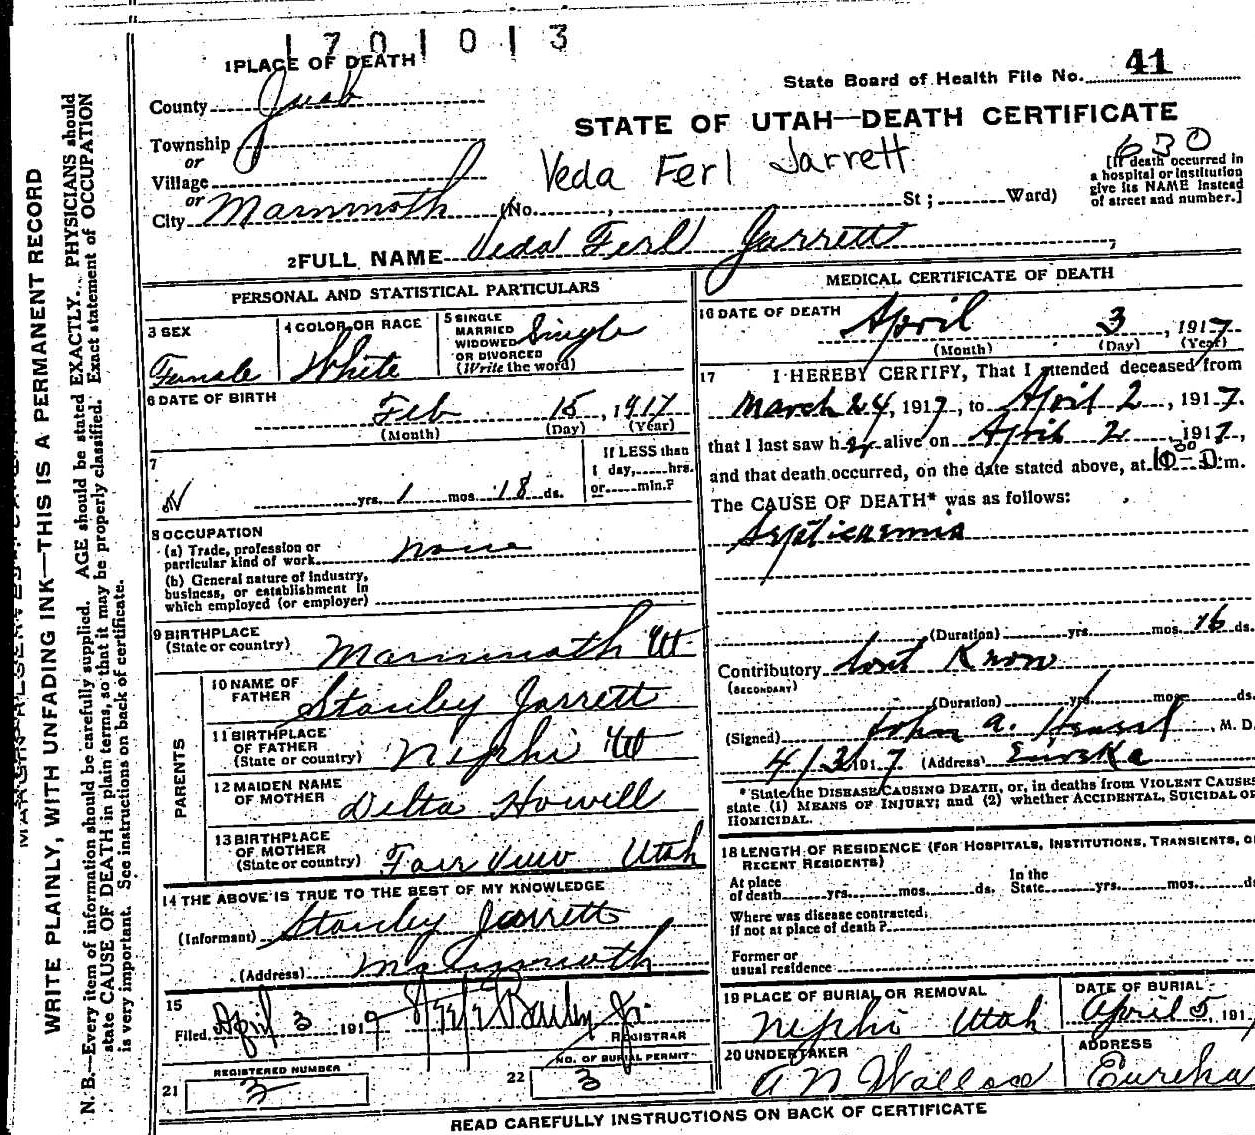 1701013
1 PLACE OF DEATH
State Board of Health File No. 41
County Juab
STATE OF UTAH—DEATH CERTIFICATE
Township
or
Village
or
City Mammoth (No. , St ; Ward)
630
Veda Ferl Jarrett
[If death occurred in
a hospital or institution
give its NAME instead
of street and number.]
2 FULL NAME Veda Ferl Jarrett
PERSONAL AND STATISTICAL PARTICULARS
3 SEX
Female
4 COLOR OR RACE
White
5 SINGLE
MARRIED
WIDOWED
OR DIVORCED
(Write the word)
Single
6 DATE OF BIRTH
Feb 15, 1917
(Month) (Day) (Year)
7
yrs. 1 mos. 18 ds.
If LESS than
1 day, hrs.
or min.?
8 OCCUPATION
(a) Trade, profession or
particular kind of work none
(b) General nature of industry,
business, or establishment in
which employed (or employer)
9 BIRTHPLACE
(State or country) Mammoth Ut
PARENTS
10 NAME OF
FATHER Stanley Jarrett
11 BIRTHPLACE
OF FATHER
(State or country) Nephi Ut
12 MAIDEN NAME
OF MOTHER Delta Howell
13 BIRTHPLACE
OF MOTHER
(State or country) Fair View Utah
14 THE ABOVE IS TRUE TO THE BEST OF MY KNOWLEDGE
(Informant) Stanley Jarrett
(Address) Mammoth
15
Filed April 3 191 Bailey Jr.
REGISTRAR
REGISTERED NUMBER
21 3
NO. OF BURIAL PERMIT
22 3
MEDICAL CERTIFICATE OF DEATH
16 DATE OF DEATH
April 3, 1917
(Month) (Day) (Year)
17 I HEREBY CERTIFY, That I attended deceased from
March 24, 1917, to April 2, 1917.
that I last saw her alive on April 2, 1917,
and that death occurred, on the date stated above, at 10 30 m.
The CAUSE OF DEATH* was as follows:
Septicaemia
(Duration) yrs. mos. 16 ds.
Contributory Dont Know
(SECONDARY)
(Duration) yrs. mos. ds.
(Signed) John A. Hensel, M. D.
4/3 1917 (Address) Eureka
* State the DISEASE CAUSING DEATH, or, in deaths from VIOLENT CAUSES
state (1) MEANS OF INJURY; and (2) whether ACCIDENTAL, SUICIDAL OR
HOMICIDAL.
18 LENGTH OF RESIDENCE (FOR HOSPITALS, INSTITUTIONS, TRANSIENTS, OR
RECENT RESIDENTS)
At place
of death yrs. mos. ds.
In the
State yrs. mos. ds
Where was disease contracted,
if not at place of death?
Former or
usual residence
19 PLACE OF BURIAL OR REMOVAL
Nephi Utah
DATE OF BURIAL
April 5, 191
20 UNDERTAKER
A N Wallace
ADDRESS
Eureka
READ CAREFULLY INSTRUCTIONS ON BACK OF CERTIFICATE
WRITE PLAINLY, WITH UNFADING INK—THIS IS A PERMANENT RECORD
N. B.—Every item of information should be carefully supplied. AGE should be stated EXACTLY. PHYSICIANS should
state CAUSE OF DEATH in plain terms, so that it may be properly classified. Exact statement of OCCUPATION
is very important. See instructions on back of certificate.